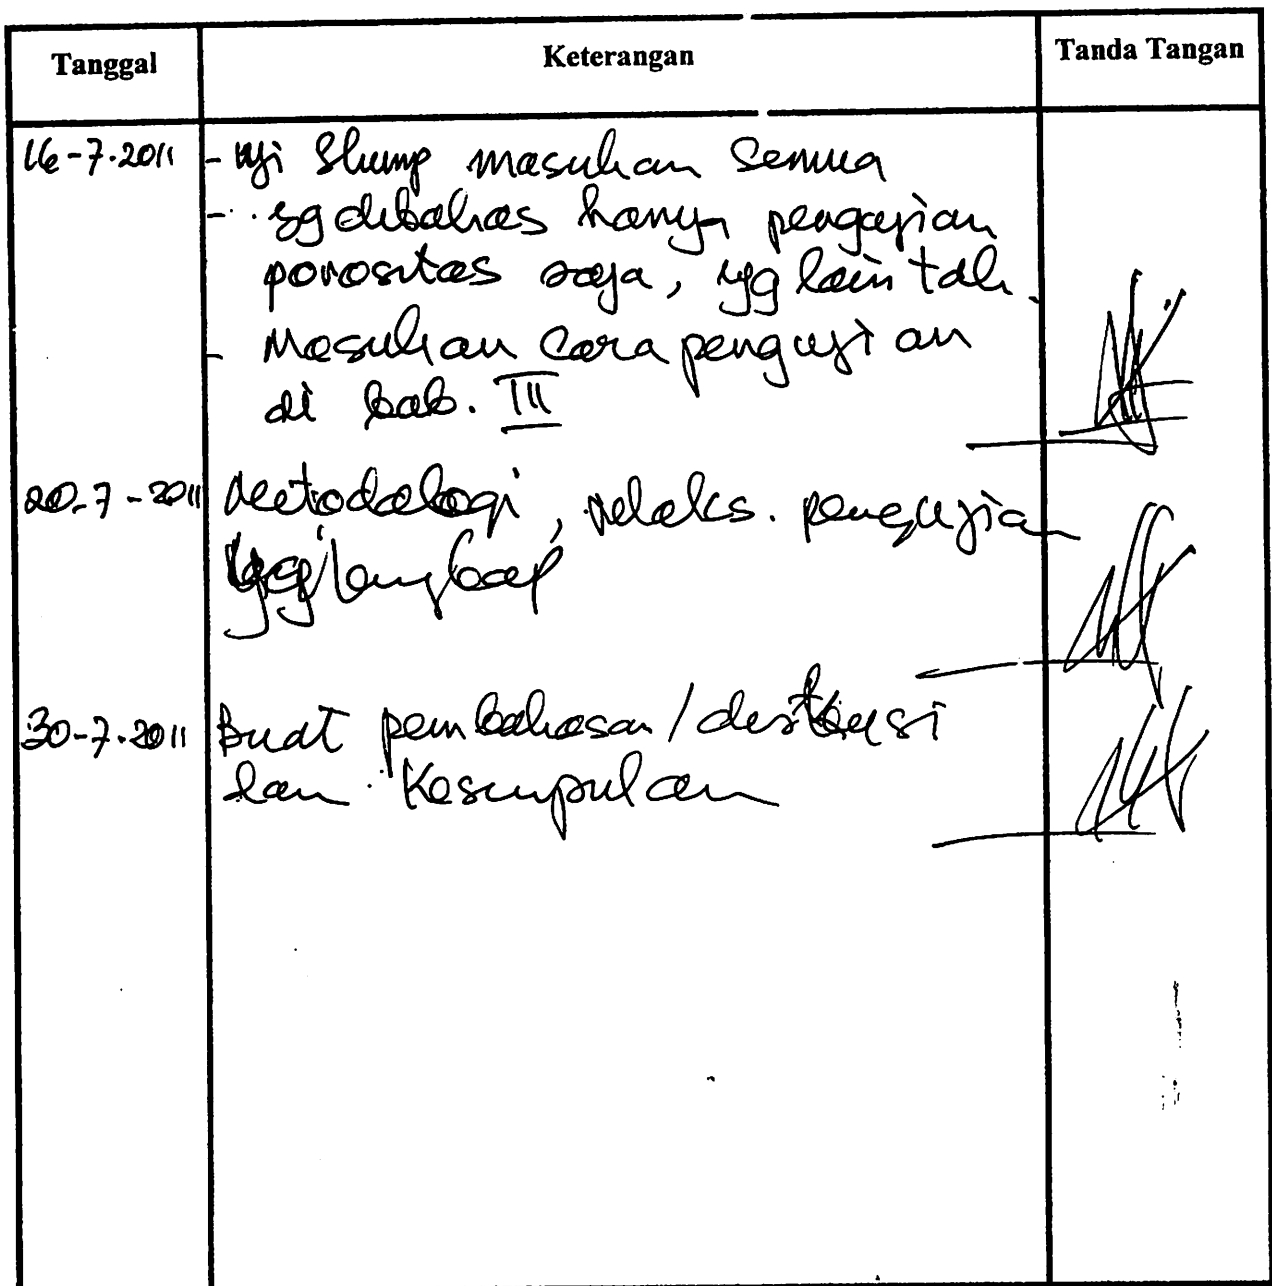 Tanggal Keterangan Tanda Tangan
16-7-2011 - Uji Slump masukan Semua
- yg dibahas hanya pengujian
porositas saja, yg lain tdk.
- Masukan Cara pengujian
di bab. III
20-7-2011 Metodologi, pelaks. pengujian
yg lengkap
30-7-2011 Buat pembahasan/diskusi
dan Kesimpulan